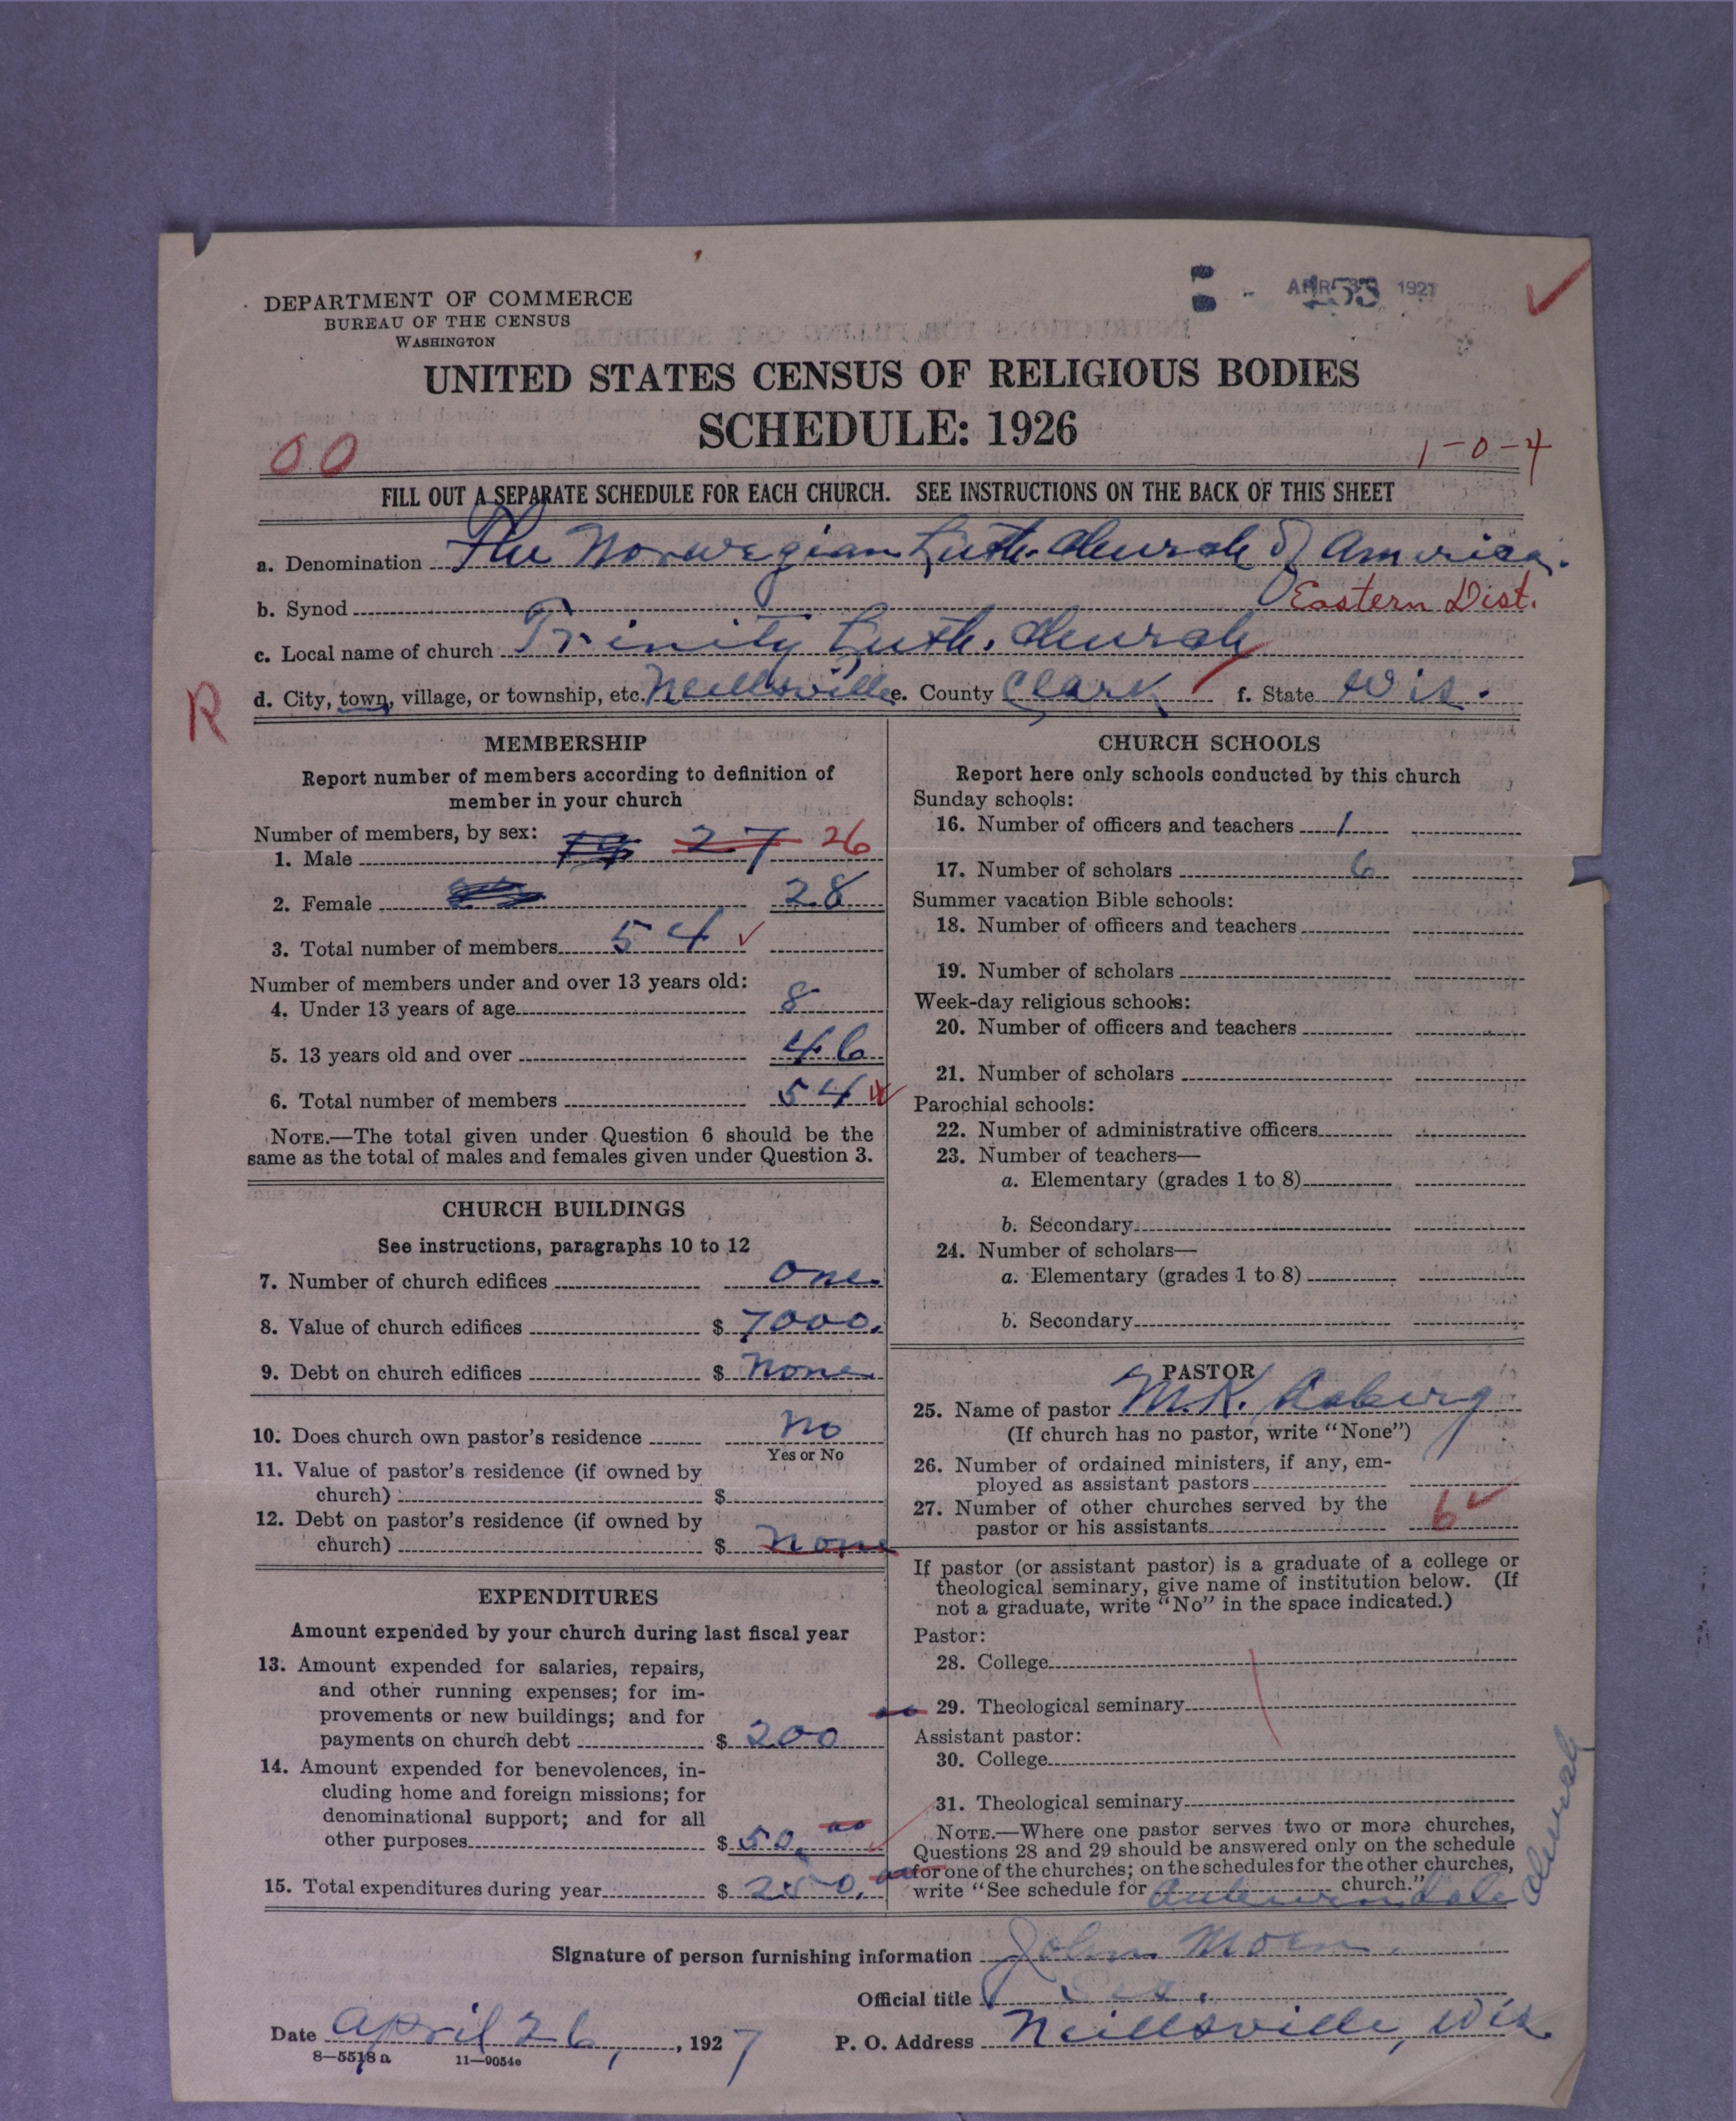 DEPARTMENT OF COMMERCE
BUREAU OF THE CENSUS
WASHINGTON
1927
UNITED STATES CENSUS OF RELIGIOUS BODIES
SCHEDULE: 1926
00
1-0-4
FILL OUT A SEPARATE SCHEDULE FOR EACH CHURCH. SEE INSTRUCTIONS ON THE BACK OF THIS SHEET
a. Denomination The Norwegian Luth. Church of America.
b. Synod Eastern Dist.
c. Local name of church Trinity Luth. Church
R
d. City, town, village, or township, etc. Neillsville e. County Clark f. State Wis.
MEMBERSHIP
Report number of members according to definition of
member in your church
Number of members, by sex:
1. Male 27 26
2. Female 28
3. Total number of members 54
Number of members under and over 13 years old:
4. Under 13 years of age 8
5. 13 years old and over 46
6. Total number of members 54
NOTE.—The total given under Question 6 should be the
same as the total of males and females given under Question 3.
CHURCH BUILDINGS
See instructions, paragraphs 10 to 12
7. Number of church edifices one
8. Value of church edifices $ 7000.
9. Debt on church edifices $ none
10. Does church own pastor's residence no
Yes or No
11. Value of pastor's residence (if owned by
church) $
12. Debt on pastor's residence (if owned by
church) $ none
EXPENDITURES
Amount expended by your church during last fiscal year
13. Amount expended for salaries, repairs,
and other running expenses; for im-
provements or new buildings; and for
payments on church debt $ 200 00
14. Amount expended for benevolences, in-
cluding home and foreign missions; for
denominational support; and for all
other purposes $ 50. 00
15. Total expenditures during year $ 250. 00
CHURCH SCHOOLS
Report here only schools conducted by this church
Sunday schools:
16. Number of officers and teachers 1
17. Number of scholars 6
Summer vacation Bible schools:
18. Number of officers and teachers
19. Number of scholars
Week-day religious schools:
20. Number of officers and teachers
21. Number of scholars
Parochial schools:
22. Number of administrative officers
23. Number of teachers—
a. Elementary (grades 1 to 8)
b. Secondary
24. Number of scholars—
a. Elementary (grades 1 to 8)
b. Secondary
PASTOR
25. Name of pastor M.K. Aaberg
(If church has no pastor, write "None")
26. Number of ordained ministers, if any, em-
ployed as assistant pastors
27. Number of other churches served by the
pastor or his assistants 6
If pastor (or assistant pastor) is a graduate of a college or
theological seminary, give name of institution below. (If
not a graduate, write "No" in the space indicated.)
Pastor:
28. College
29. Theological seminary
Assistant pastor:
30. College
31. Theological seminary
NOTE.—Where one pastor serves two or more churches,
Questions 28 and 29 should be answered only on the schedule
for one of the churches; on the schedules for the other churches,
write "See schedule for Auburndale church."
Church
Signature of person furnishing information John Moen
Official title Sec.
Date April 26, 1927 P. O. Address Neillsville, Wis.
8—5518 a 11—9054c